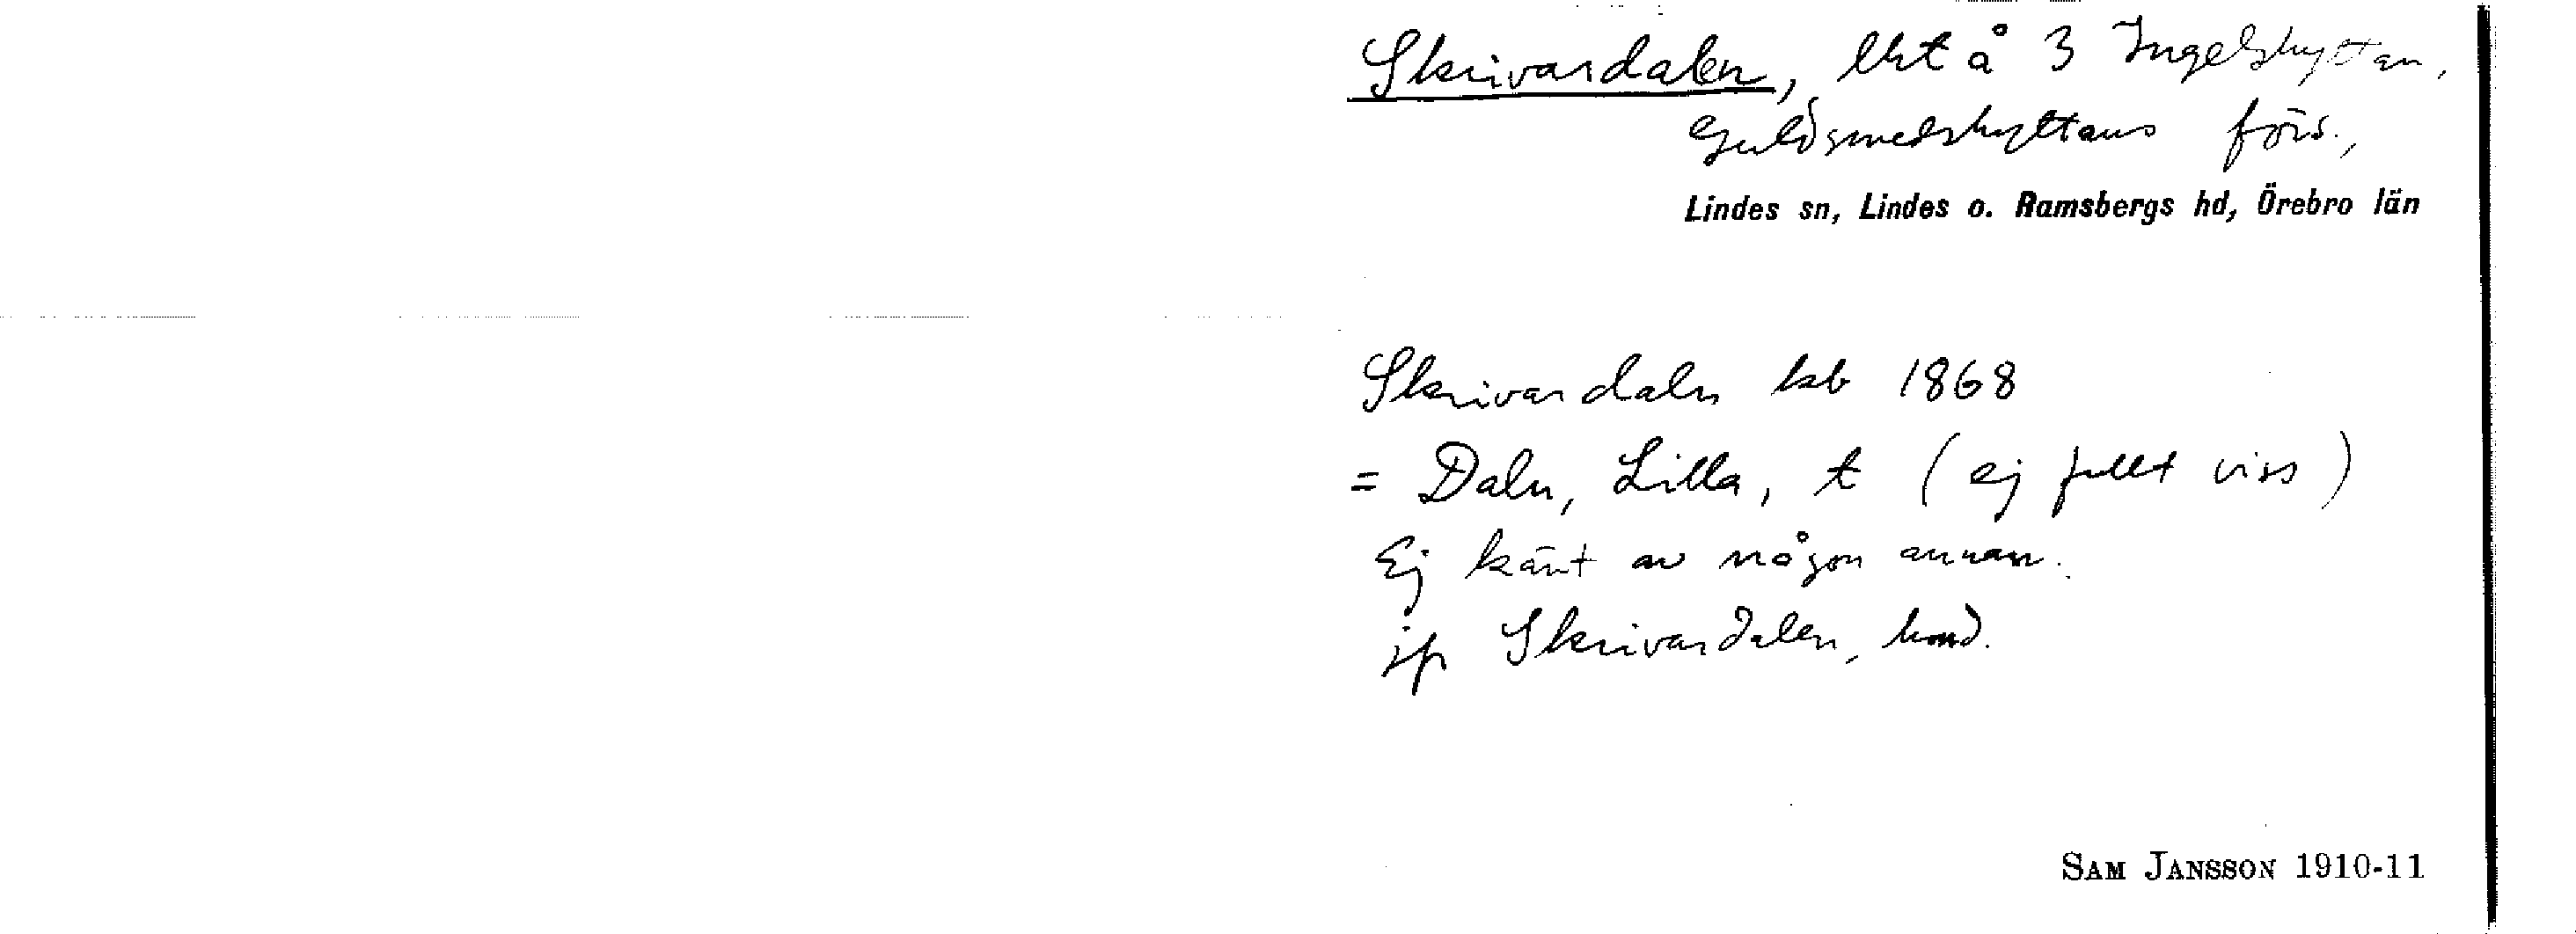 Skrivardalen, lht å 3 Ingelshyttan,
Guldsmedshyttans förs.,
Lindes sn, Lindes o. Ramsbergs hd, Örebro län
Skrivardaln kb 1868
= Daln, Lilla, t (ej fullt viss)
Ej känt av någon annan.
jfr Skrivardalen,
SAM JANSSON 1910-11